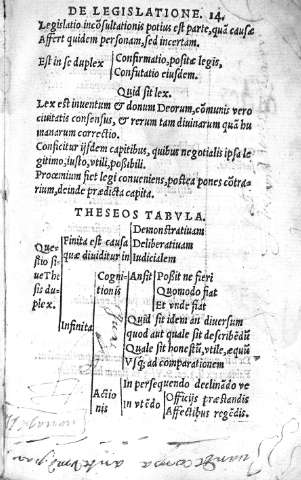 DE LEGISLATIONE. 14.
Legislatio incõsultationis potius est parte, quã causæ
Affert quidem personam, sed incertam.
Est in se duplex
Confirmatio, positæ legis,
Confutatio eiusdem.
Quid sit lex.
Lex est inuentum & donum Deorum, cõmunis vero
ciuitatis consensus, & rerum tam diuinarum quã hu
manarum correctio.
Conficitur ijsdem capitibus, quibus negotialis ipsa le
gitimo, iusto, vtili, poßibili.
Proœmium fiet legi conueniens, postea pones cõtra-
rium, deinde prædicta capita.
THESEOS TABVLA.
Quæ-
stio si
ue The
sis du-
plex.
Finita est causa
quæ diuiditur in
Demonstratiuam
Deliberatiuam
Iudicialem
Infinita
Cogni-
tionis
An sit
Poßit ne fieri
Quomodo fiat
Et vnde fiat
Quid sit idem an diuersum
quod aut quale sit describẽdũ
Quale sit honestũ, vtile, æquũ
Vsq; ad comparationem
Actio
nis
In persequendo declinãdo ve
in vtẽdo
Officijs præstandis
Affectibus regẽdis.